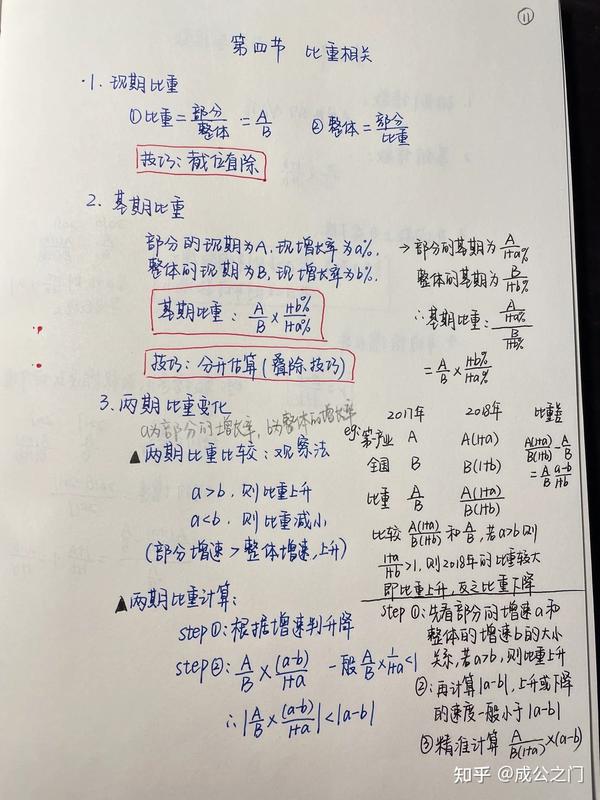 ⑪
第四节 比重相关
·1. 现期比重
①比重=部分/整体=A/B ②整体=部分/比重
技巧:截位直除
2. 基期比重
部分的现期为A,现增长率为a%.
整体的现期为B,现增长率为b%.
→部分的基期为A/(1+a%)
整体的基期为B/(1+b%)
基期比重:A/B×(1+b%)/(1+a%)
∴基期比重:(A/(1+a%))/(B/(1+b%))
=A/B×(1+b%)/(1+a%)
技巧:分开估算(叠除技巧)
3. 两期比重变化
a为部分的增长率,b为整体的增长率
▲两期比重比较:观察法
a>b,则比重上升
a<b,则比重减小
(部分增速>整体增速,上升)
2017年 2018年 比重差
eg:第一产业 A A(1+a) A(1+a)/B(1+b)-A/B
全国 B B(1+b) =A/B (a-b)/(1+b)
比重 A/B A(1+a)/B(1+b)
比较A(1+a)/B(1+b)和A/B,若a>b则
(1+a)/(1+b)>1,则2018年的比重较大
即比重上升,反之比重下降
▲两期比重计算:
step①:根据增速判升降
step②:A/B×(a-b)/(1+a) 一般A/B×1/(1+a)<1
∴|A/B×(a-b)/(1+a)|<|a-b|
step①:先看部分的增速a和
整体的增速b的大小
关系,若a>b,则比重上升
②:再计算|a-b|,上升或下降
的速度一般小于|a-b|
③精准计算 A/B(1+a)×(a-b)
知乎 @成公之门